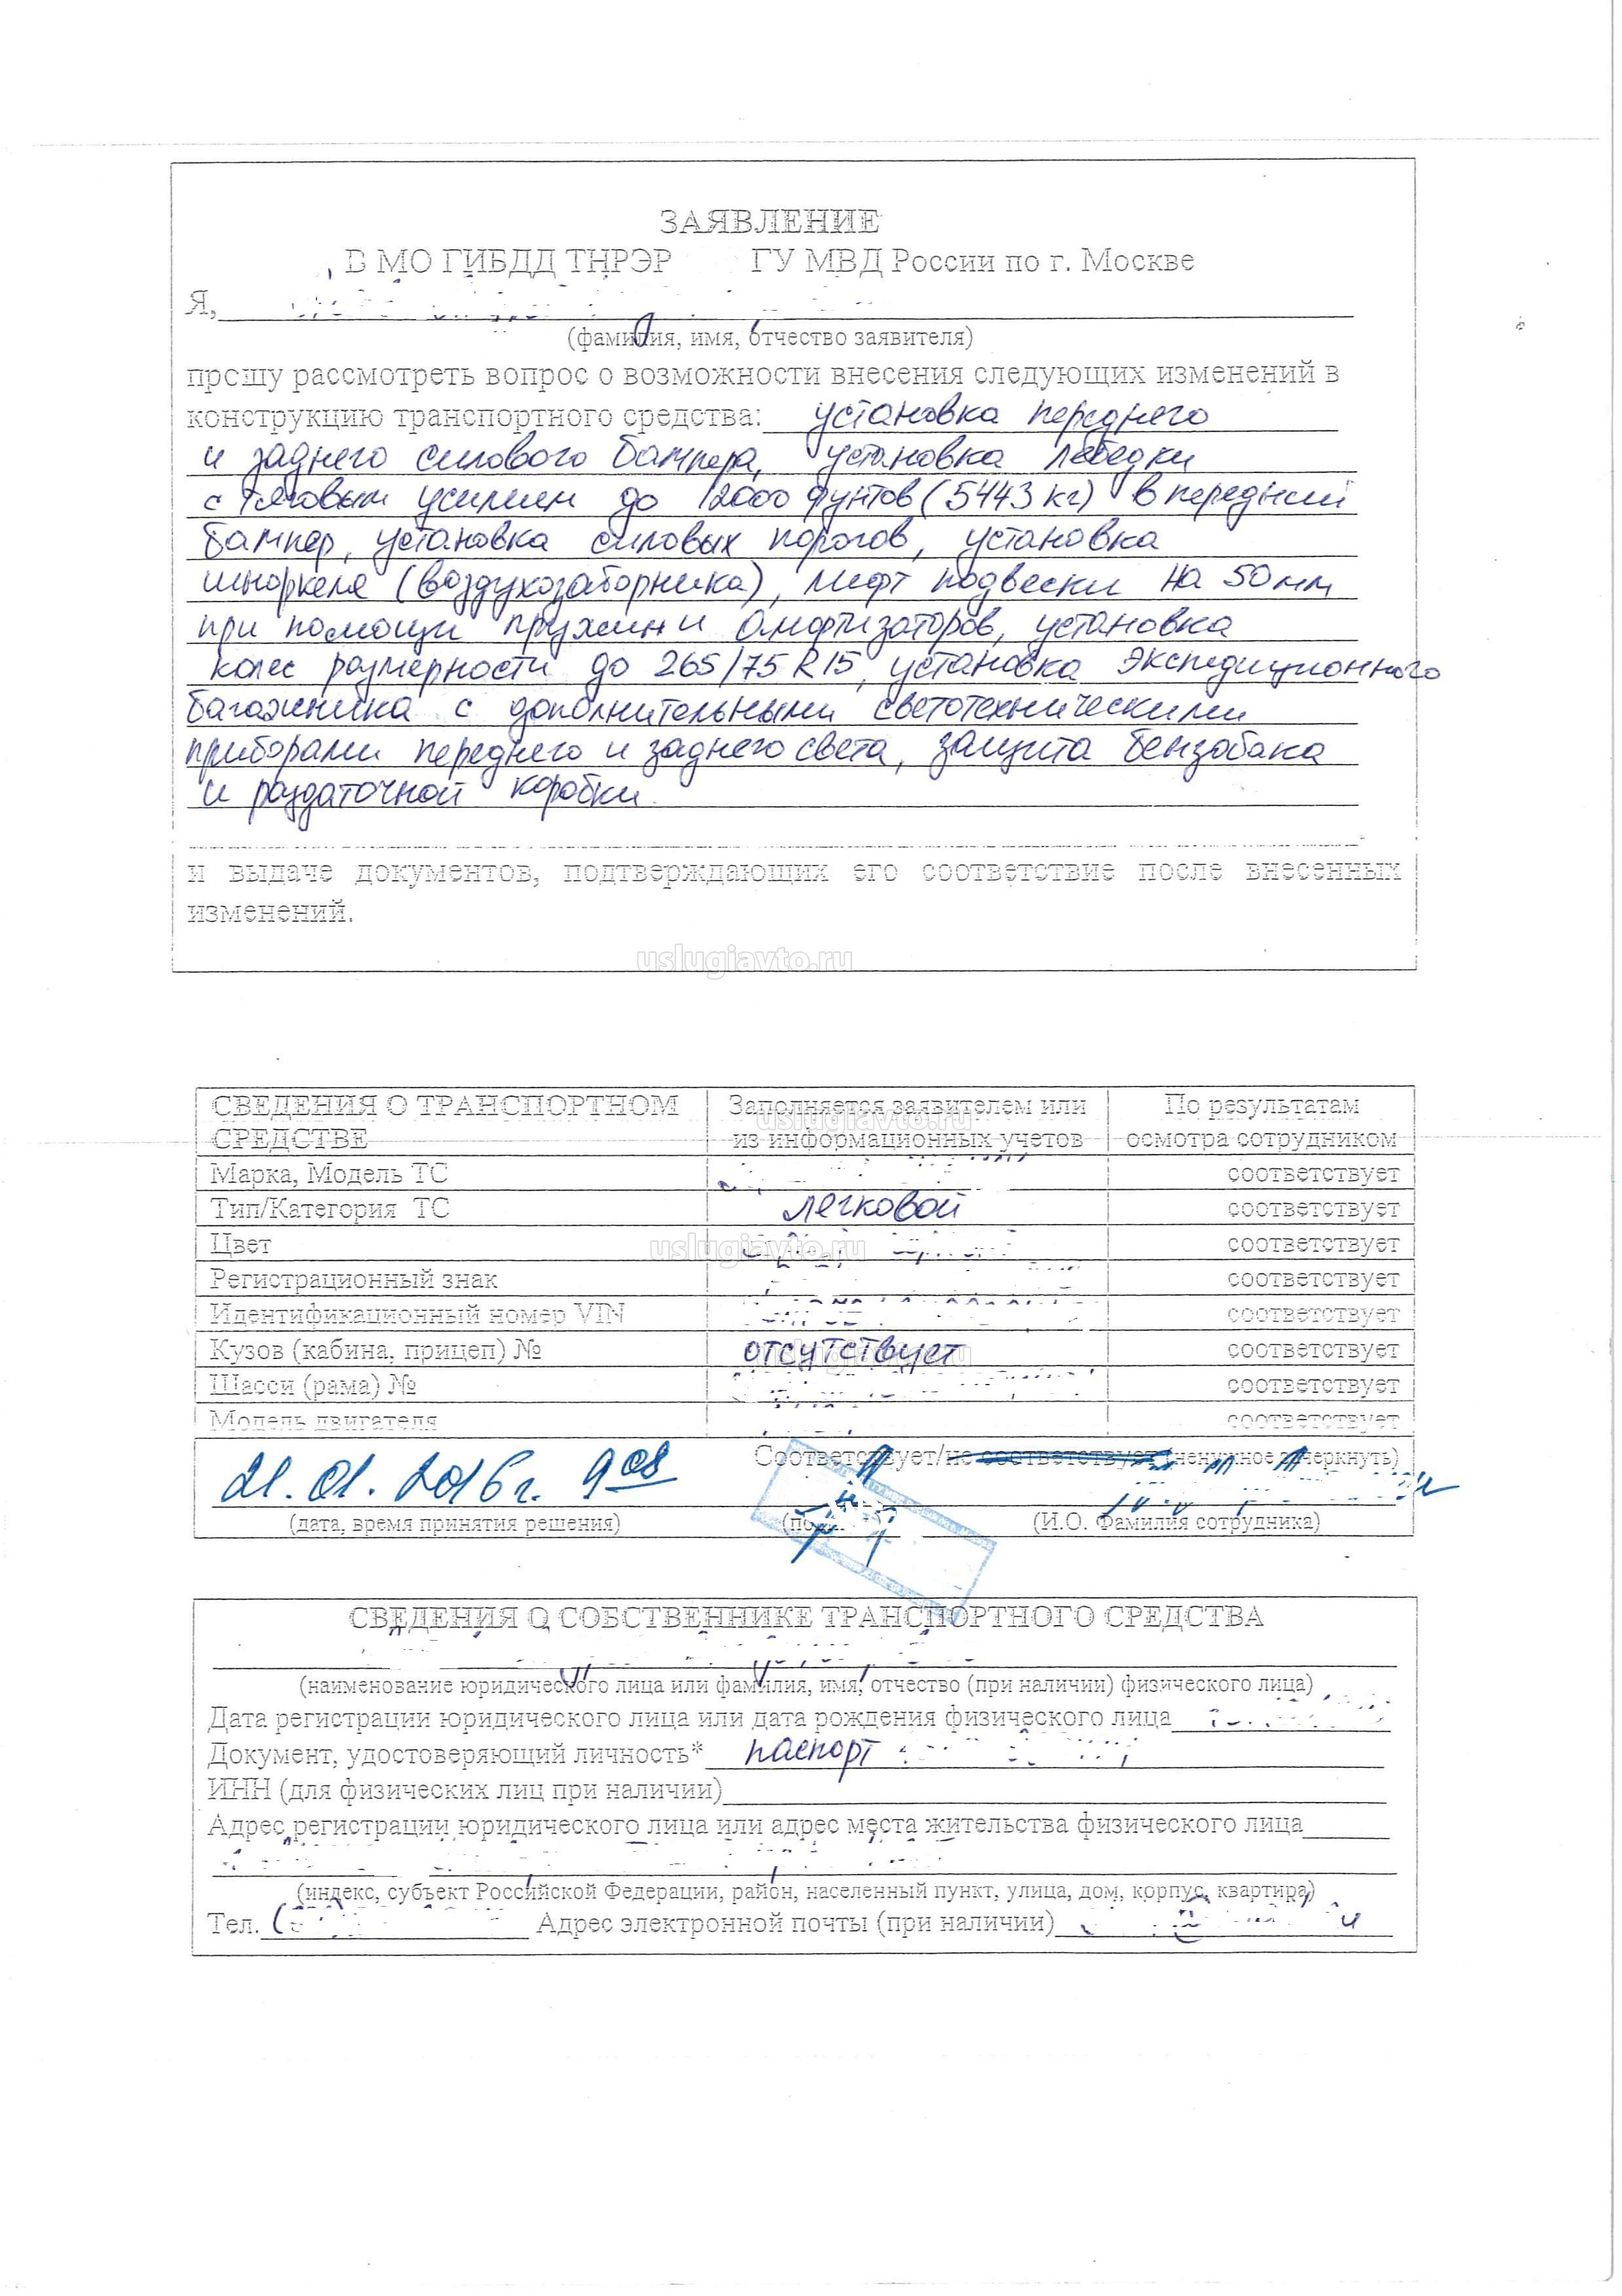 ЗАЯВЛЕНИЕ
В МО ГИБДД ТНРЭР ГУ МВД России по г. Москве
Я,
(фамилия, имя, отчество заявителя)
прошу рассмотреть вопрос о возможности внесения следующих изменений в
конструкцию транспортного средства: установка переднего
и заднего силового бампера, установка лебедки
с тяговым усилием до 12000 фунтов (5443 кг) в передний
бампер, установка силовых порогов, установка
шноркеля (воздухозаборника), лифт подвески на 50 мм
при помощи пружин и амортизаторов, установка
колес размерности до 265/75 R15, установка экспедиционного
багажника с дополнительными светотехническими
приборами переднего и заднего света, защита бензобака
и раздаточной коробки.
и выдаче документов, подтверждающих его соответствие после внесенных
изменений.
uslugiavto.ru
СВЕДЕНИЯ О ТРАНСПОРТНОМ СРЕДСТВЕ
Заполняется заявителем или из информационных учетов
По результатам осмотра сотрудником
uslugiavto.ru
Марка, Модель ТС соответствует
Тип/Категория ТС легковой соответствует
Цвет соответствует
uslugiavto.ru
Регистрационный знак соответствует
Идентификационный номер VIN соответствует
Кузов (кабина, прицеп) № отсутствует соответствует
uslugiavto.ru
Шасси (рама) № соответствует
Модель двигателя соответствует
Соответствует/не соответствует (ненужное зачеркнуть)
21.01.2016г. 9 08
(дата, время принятия решения) (И.О. Фамилия сотрудника)
СВЕДЕНИЯ О СОБСТВЕННИКЕ ТРАНСПОРТНОГО СРЕДСТВА
(наименование юридического лица или фамилия, имя, отчество (при наличии) физического лица)
Дата регистрации юридического лица или дата рождения физического лица
Документ, удостоверяющий личность* паспорт
ИНН (для физических лиц при наличии)
Адрес регистрации юридического лица или адрес места жительства физического лица
(индекс, субъект Российской Федерации, район, населенный пункт, улица, дом, корпус, квартира)
Тел. Адрес электронной почты (при наличии)